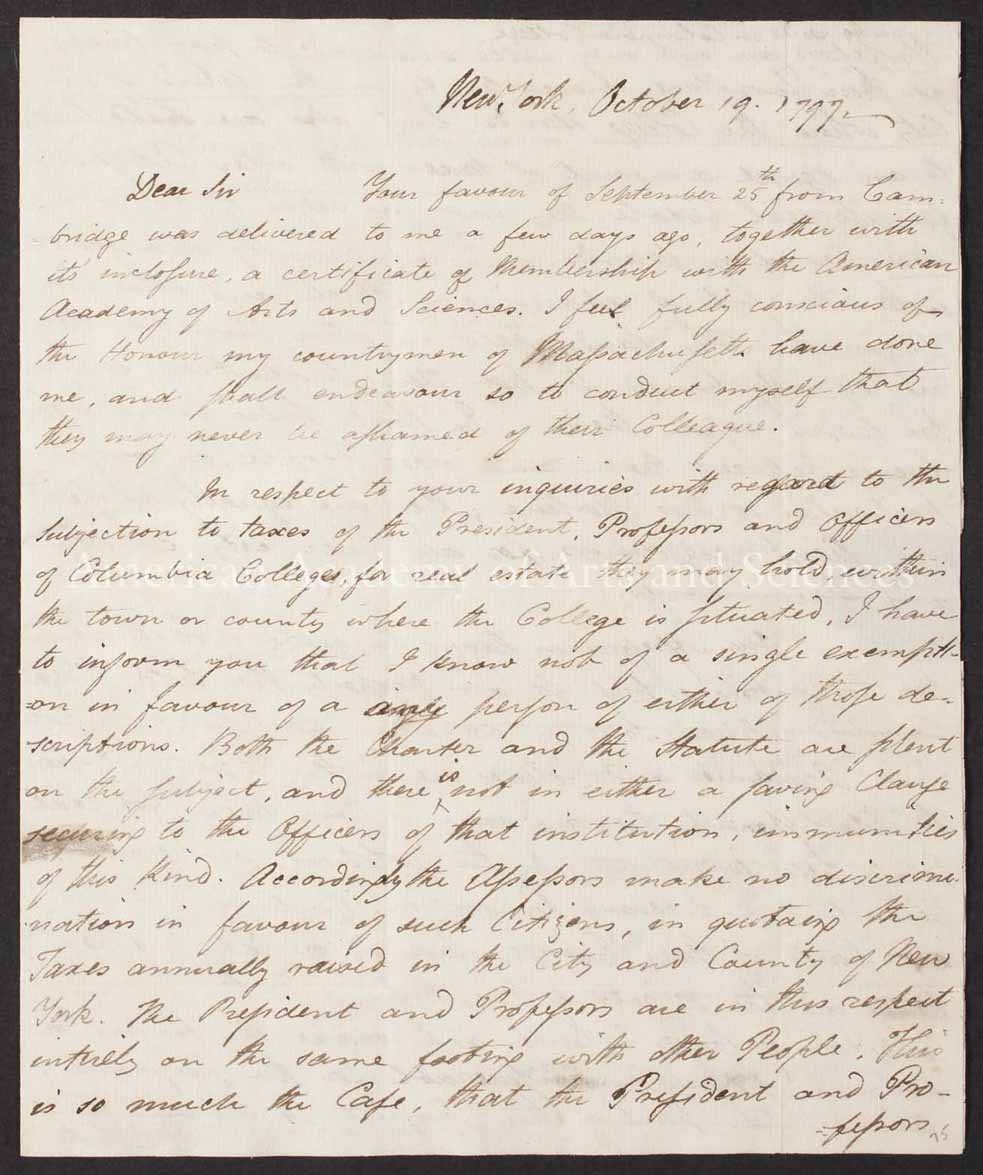 New York, October 19. 1797.
Dear Sir Your favour of September 25th from Cam-
bridge was delivered to me a few days ago, together with
its inclosure, a certificate of Membership with the American
Academy of Arts and Sciences. I feel fully conscious of
the Honour my countrymen of Massachusetts have done
me, and shall endeavour so to conduct myself that
they may never be ashamed of their Colleague.
In respect to your inquiries with regard to the
Subjection to taxes of the President, Professors and Officers
of Columbia College, for real estate they may hold, within
the town or county where the College is situated, I have
to inform you that I know not of a single exempti-
-on in favour of a any person of either of those de-
-scriptions. Both the Charter and the Statute are silent
on the subject, and there is not in either a saving Clause
securing to the Officers of that institution, immunities
of this Kind. Accordingly the Assessors make no discrimi-
-nation in favour of such Citizens, in quotaing the
Taxes annually raised in the City and County of New
York. The President and Professors are in this respect
intirely on the same footing with other People. This
is so much the Case, that the President and Pro-
-fessors
American Academy of Arts and Sciences